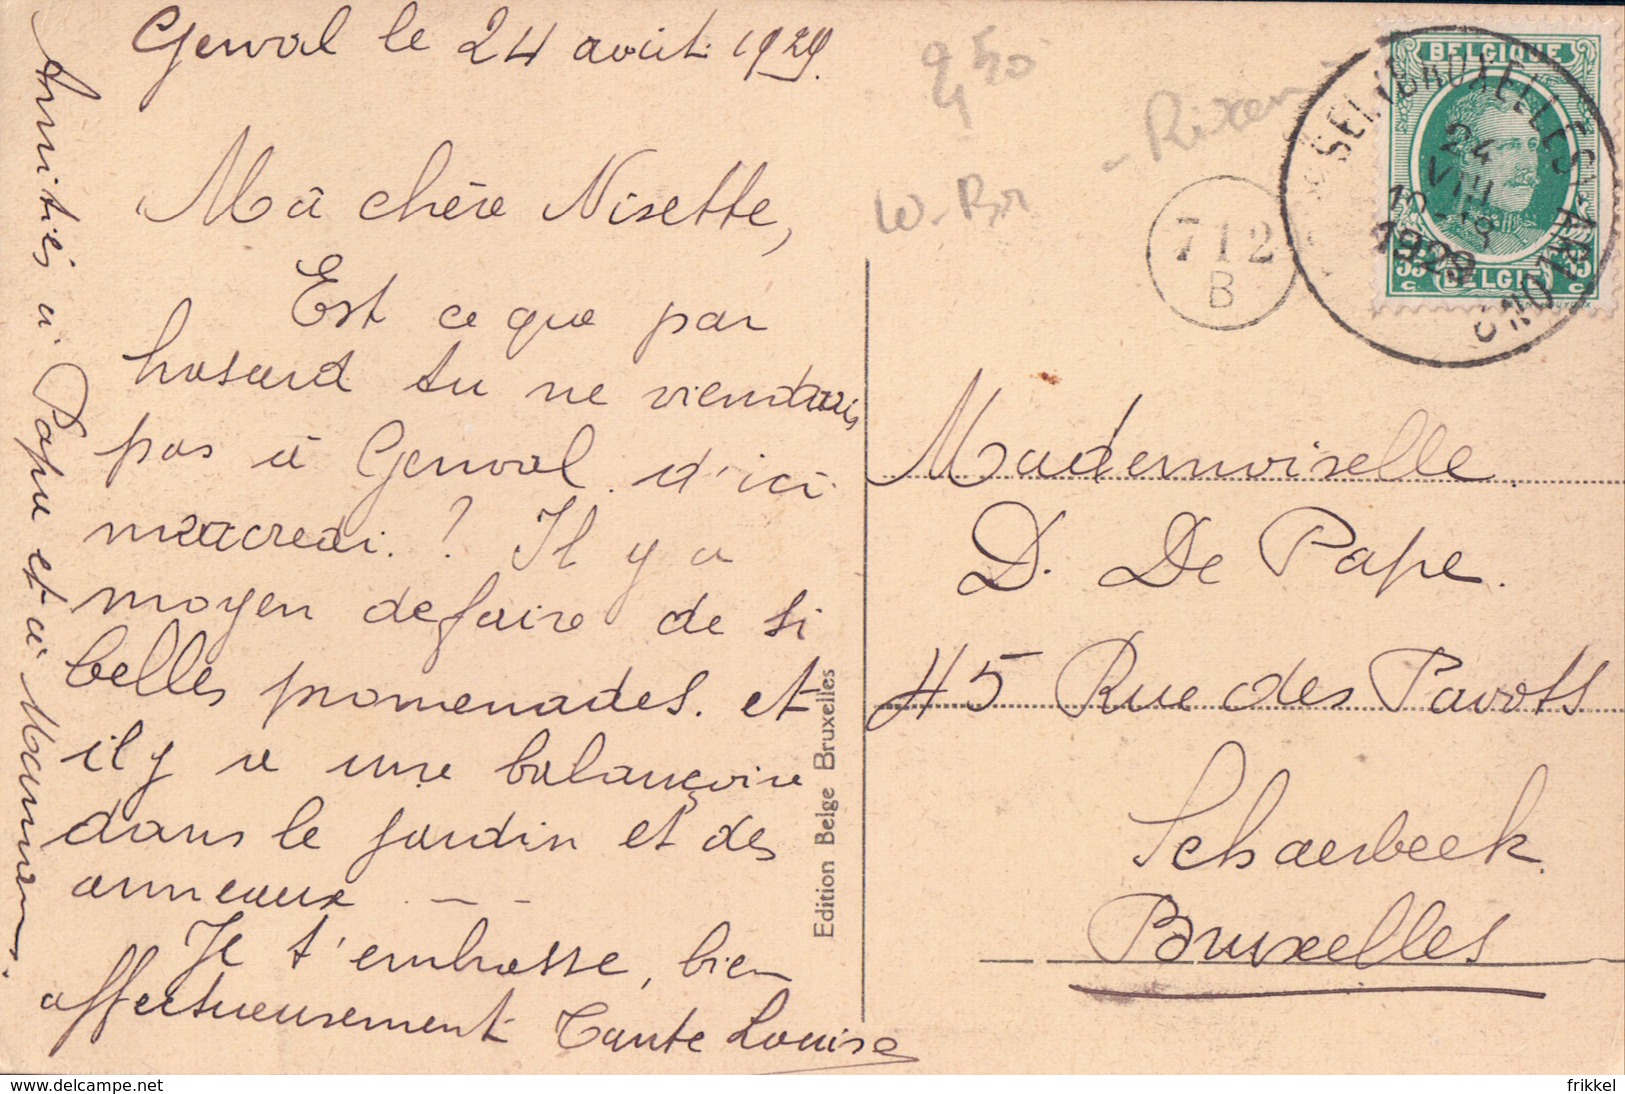 Genval le 24 août 1929.
Ma chère Nisette,
Est ce que par
hasard tu ne viendrais
pas à Genval d'ici
mercredi. ? Il y a
moyen de faire de si
belles promenades. et
il y a une balançoire
dans le jardin et des
anneaux . — -
Je t'embrasse, bien
affectueusement Tante Louise
Amitiés à Papa et à Maman.
Edition Belge Bruxelles
9,50
- Rixen
W-Br
712
B
BELGIQUE
35 35
C BELGIË C
BRUXELLES
24
VIII
1929
Mademoiselle
D. De Pape.
45 Rue des Pavots
Schaerbeek
Bruxelles
Images are copyrights by their respective owners
frikkel